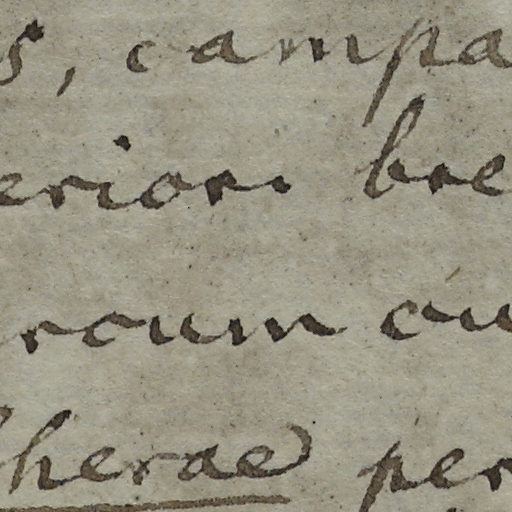 s, campa
eriori bre
rcum cu
herae per